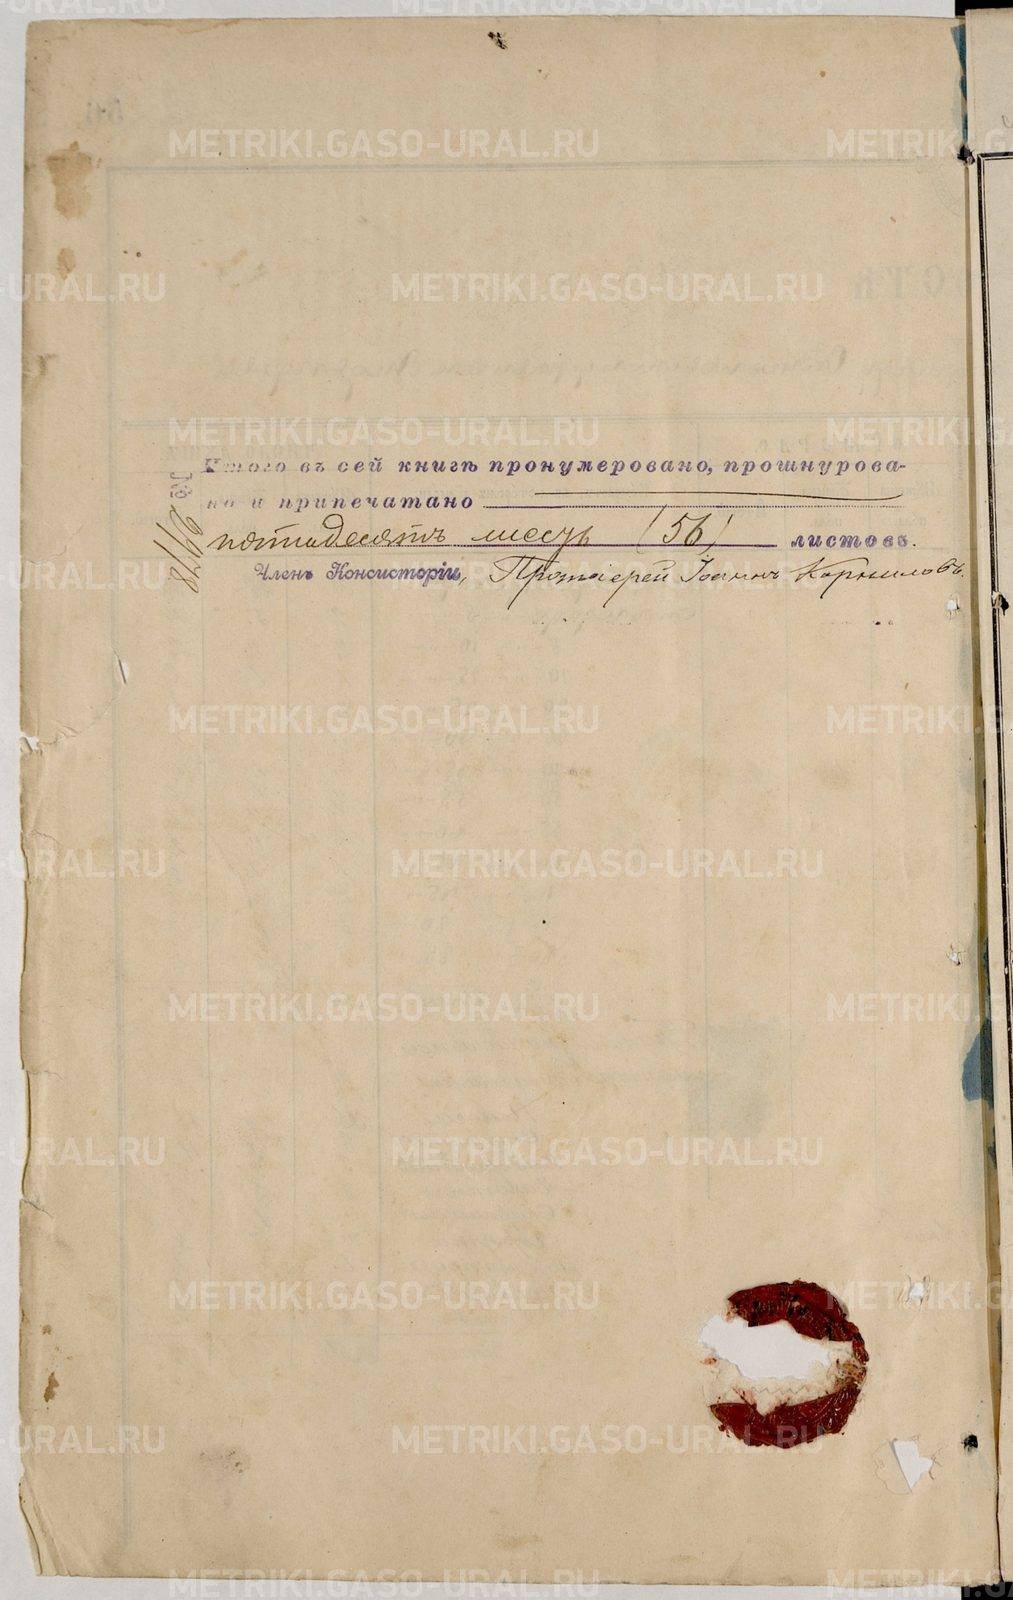 METRIKI.GASO-URAL.RU
Итого въ сей книгѣ пронумеровано, прошнурова-
но и припечатано
пятьдесятъ шесть (56) листовъ.
Членъ Консисторіи, Протоіерей Іоаннъ Корниловъ.
№